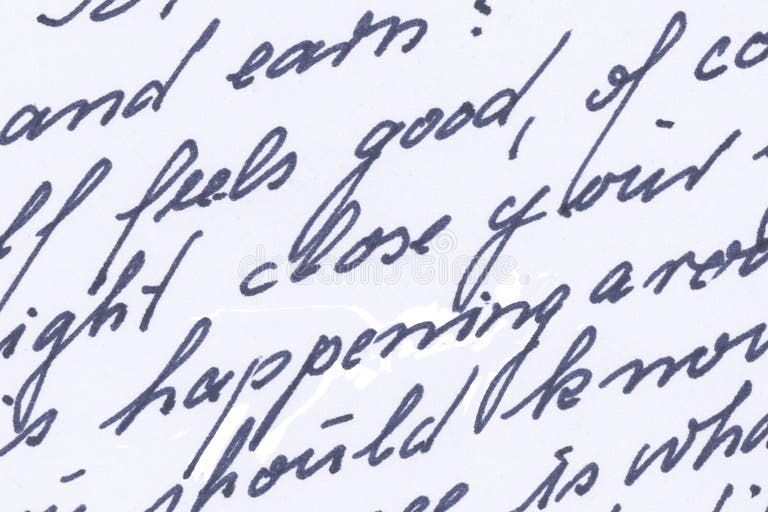 and ears?
feels good, of co
ight close your
is happening aro
should know
is wha